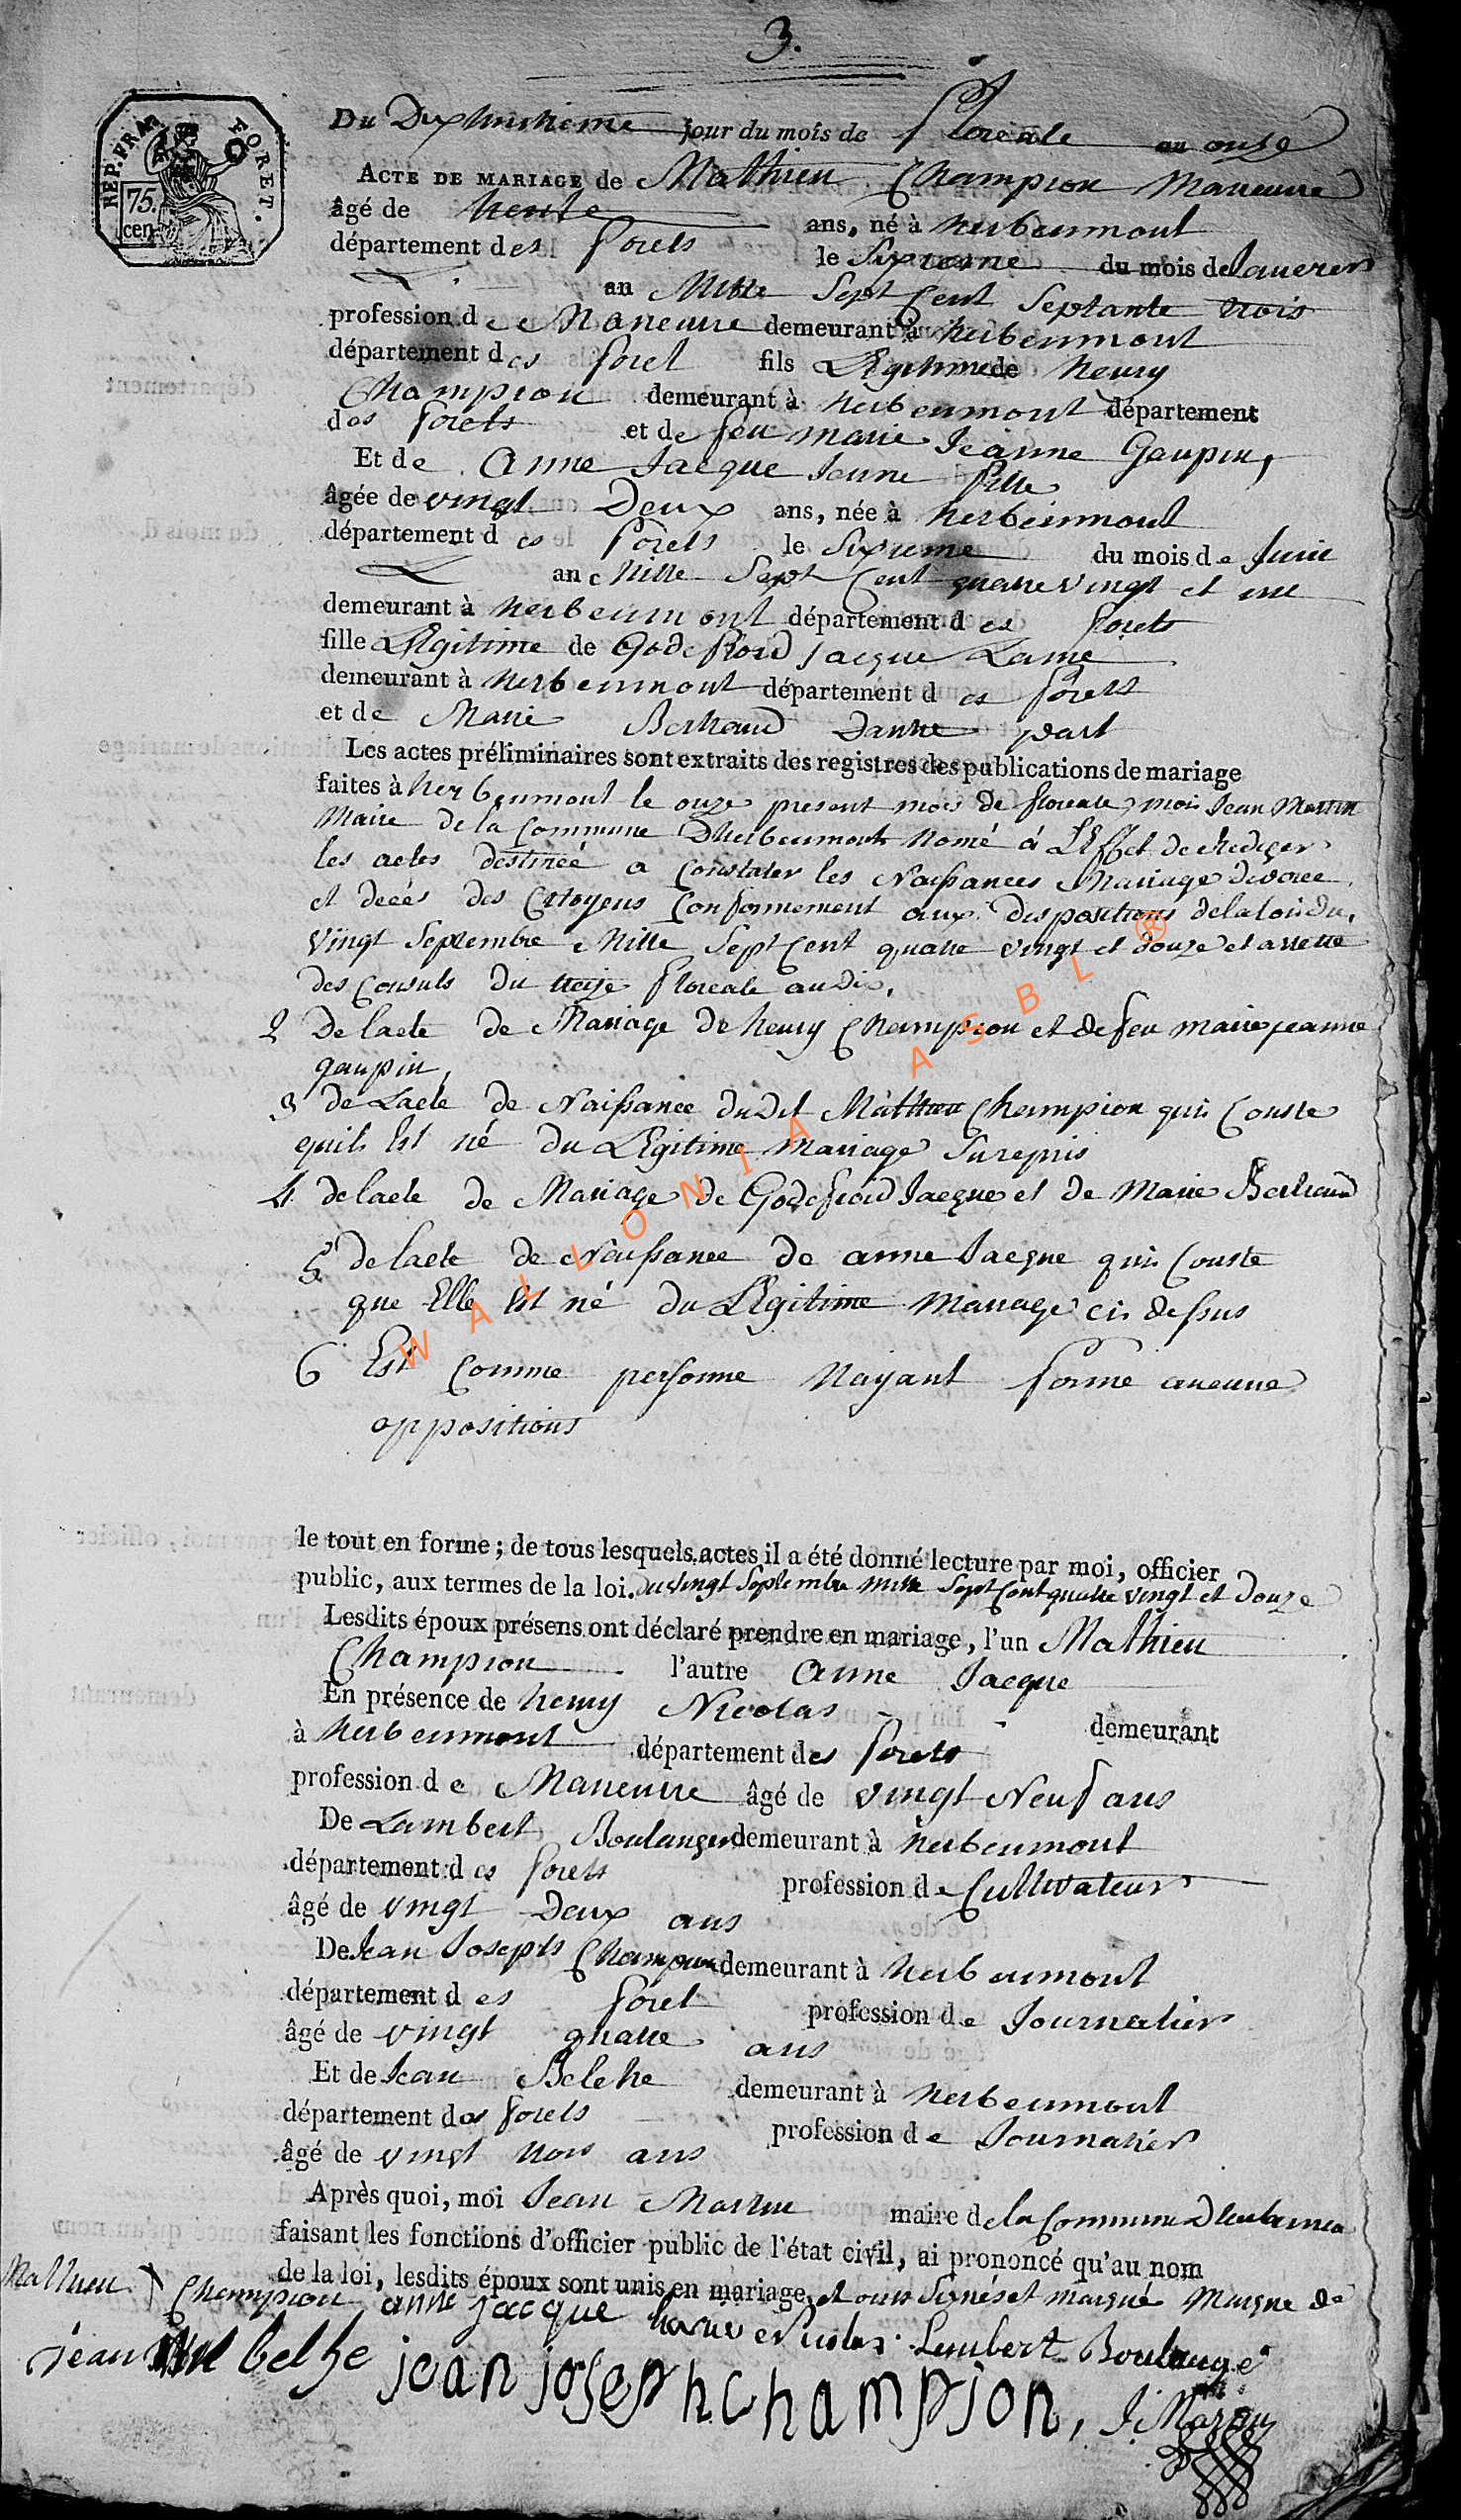 3.
REP. FRA. FORET.
75.
cen.
Du Dixhuitieme jour du mois de floreale an onze
ACTE DE MARIAGE de Mathieu Champion Maneuvre
âgé de trente ans, né à herbeumont
département des forets le Sixieme du mois de Janvier
an Mille Sept Cent Septante trois
profession de Maneuvre demeurant à herbeumont
département des foret fils Légitime de henry
Champion demeurant à herbeumont département
des forets et de feu marie Jeanne Gaupin,
Et de Anne Jacque Jeune fille
âgée de vingt Deux ans, née à herbeumont
département des forets le Sixieme du mois de Juin
an Mille Sept Cent quatre vingt et une
demeurant à herbeumont département des forets
fille Légitime de Godefroid Jacque Lainé
demeurant à herbeumont département des forets
et de Marie Bertrand Dautre part
Les actes préliminaires sont extraits des registres des publications de mariage
faites à herbeumont le onze present mois de floreale, moi Jean Martin
Maire de la Commune Dherbeumont Nomé á L'Effet de Rediger
les actes destineé a Constater les Naissances Mariage divorce
et decés des Citoyens Conformement aux dispositions de la loi du,
vingt Septembre Mille Sept Cent quatre vingt et douze et arrette
des Consuls du treize floreale an dix,
2 De lacte de Mariage de henry Champion et de feu marie jeanne
gaupin,
3 de Lacte de Naissance du Dit Mathieu Champion qui Conste
quil Est né du Légitime Mariage Surepris
4 de lacte de Mariage de Godefroid Jacque et de Marie Bertrand
5 de lacte de Naissance de anne Jacque qui Conste
que Elle Est né du Légitime Mariage ci dessus
6 Est Comme personne Nayant formé aucune
oppositions
WALLONIA ASBL ®
le tout en forme ; de tous lesquels actes il a été donné lecture par moi, officier
public, aux termes de la loi. du vingt Septembre mille Sept Cent quatre vingt et douze
Lesdits époux présens ont déclaré prendre en mariage, l'un Mathieu
Champion l'autre Anne Jacque
En présence de henry Nicolas demeurant
à herbeumont département des forets
profession de Maneuvre âgé de vingt Neuf ans
De Lambert Boulanger demeurant à herbeumont
département des forets profession de Cultivateur
âgé de vingt Deux ans
De Jean Joseph Champion demeurant à herbeumont
département des foret profession de Journalier
âgé de vingt quatre ans
Et de Jean Belche demeurant à herbeumont
département des forets profession de Journalier
âgé de vingt trois ans
Après quoi, moi Jean Martin maire de la Commune
faisant les fonctions d'officier public de l'état civil, ai prononcé qu'au nom
de la loi, lesdits époux sont unis en mariage, et ont Signés et marqué Marque de
Mathieu Champion anne jacque Nicolas Lambert Boulange
jean belhe jean joseph champion, J. Martin